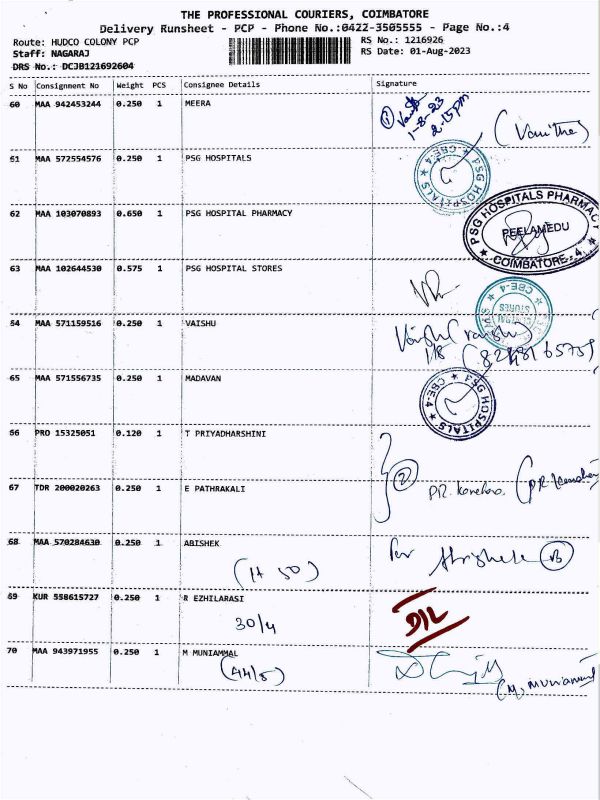 THE PROFESSIONAL COURIERS, COIMBATORE
Delivery Runsheet - PCP - Phone No.:0422-3505555 - Page No.:4
Route: HUDCO COLONY PCP
RS No.: 1216926
Staff: NAGARAJ
RS Date: 01-Aug-2023
DRS No.: DCJB121692604
S No Consignment No Weight PCS Consignee Details Signature
60 MAA 942453244 0.250 1 MEERA
1-8-23
2.15pm
(Vanitha)
61 MAA 572554576 0.250 1 PSG HOSPITALS
PSG HOSPITALS ★ CBE-4 ★
62 MAA 103070893 0.650 1 PSG HOSPITAL PHARMACY
PSG HOSPITALS PHARMACY
PEELAMEDU
★ COIMBATORE-4. ★
63 MAA 102644530 0.575 1 PSG HOSPITAL STORES
CBE-4
STORES
64 MAA 571159516 0.250 1 VAISHU
Vaishu (Vaishu)
1/8
65 MAA 571556735 0.250 1 MADAVAN
PSG HOSPITALS ★ CBE-4 ★
66 PRO 15325051 0.120 1 T PRIYADHARSHINI
2
67 TDR 200020263 0.250 1 E PATHRAKALI
68 MAA 570284630 0.250 1 ABISHEK
Abishek
(H 50)
69 KUR 558615727 0.250 1 R EZHILARASI
30/4
D/L
70 MAA 943971955 0.250 1 M MUNIAMMAL
(44/5)
(M. Muniammal